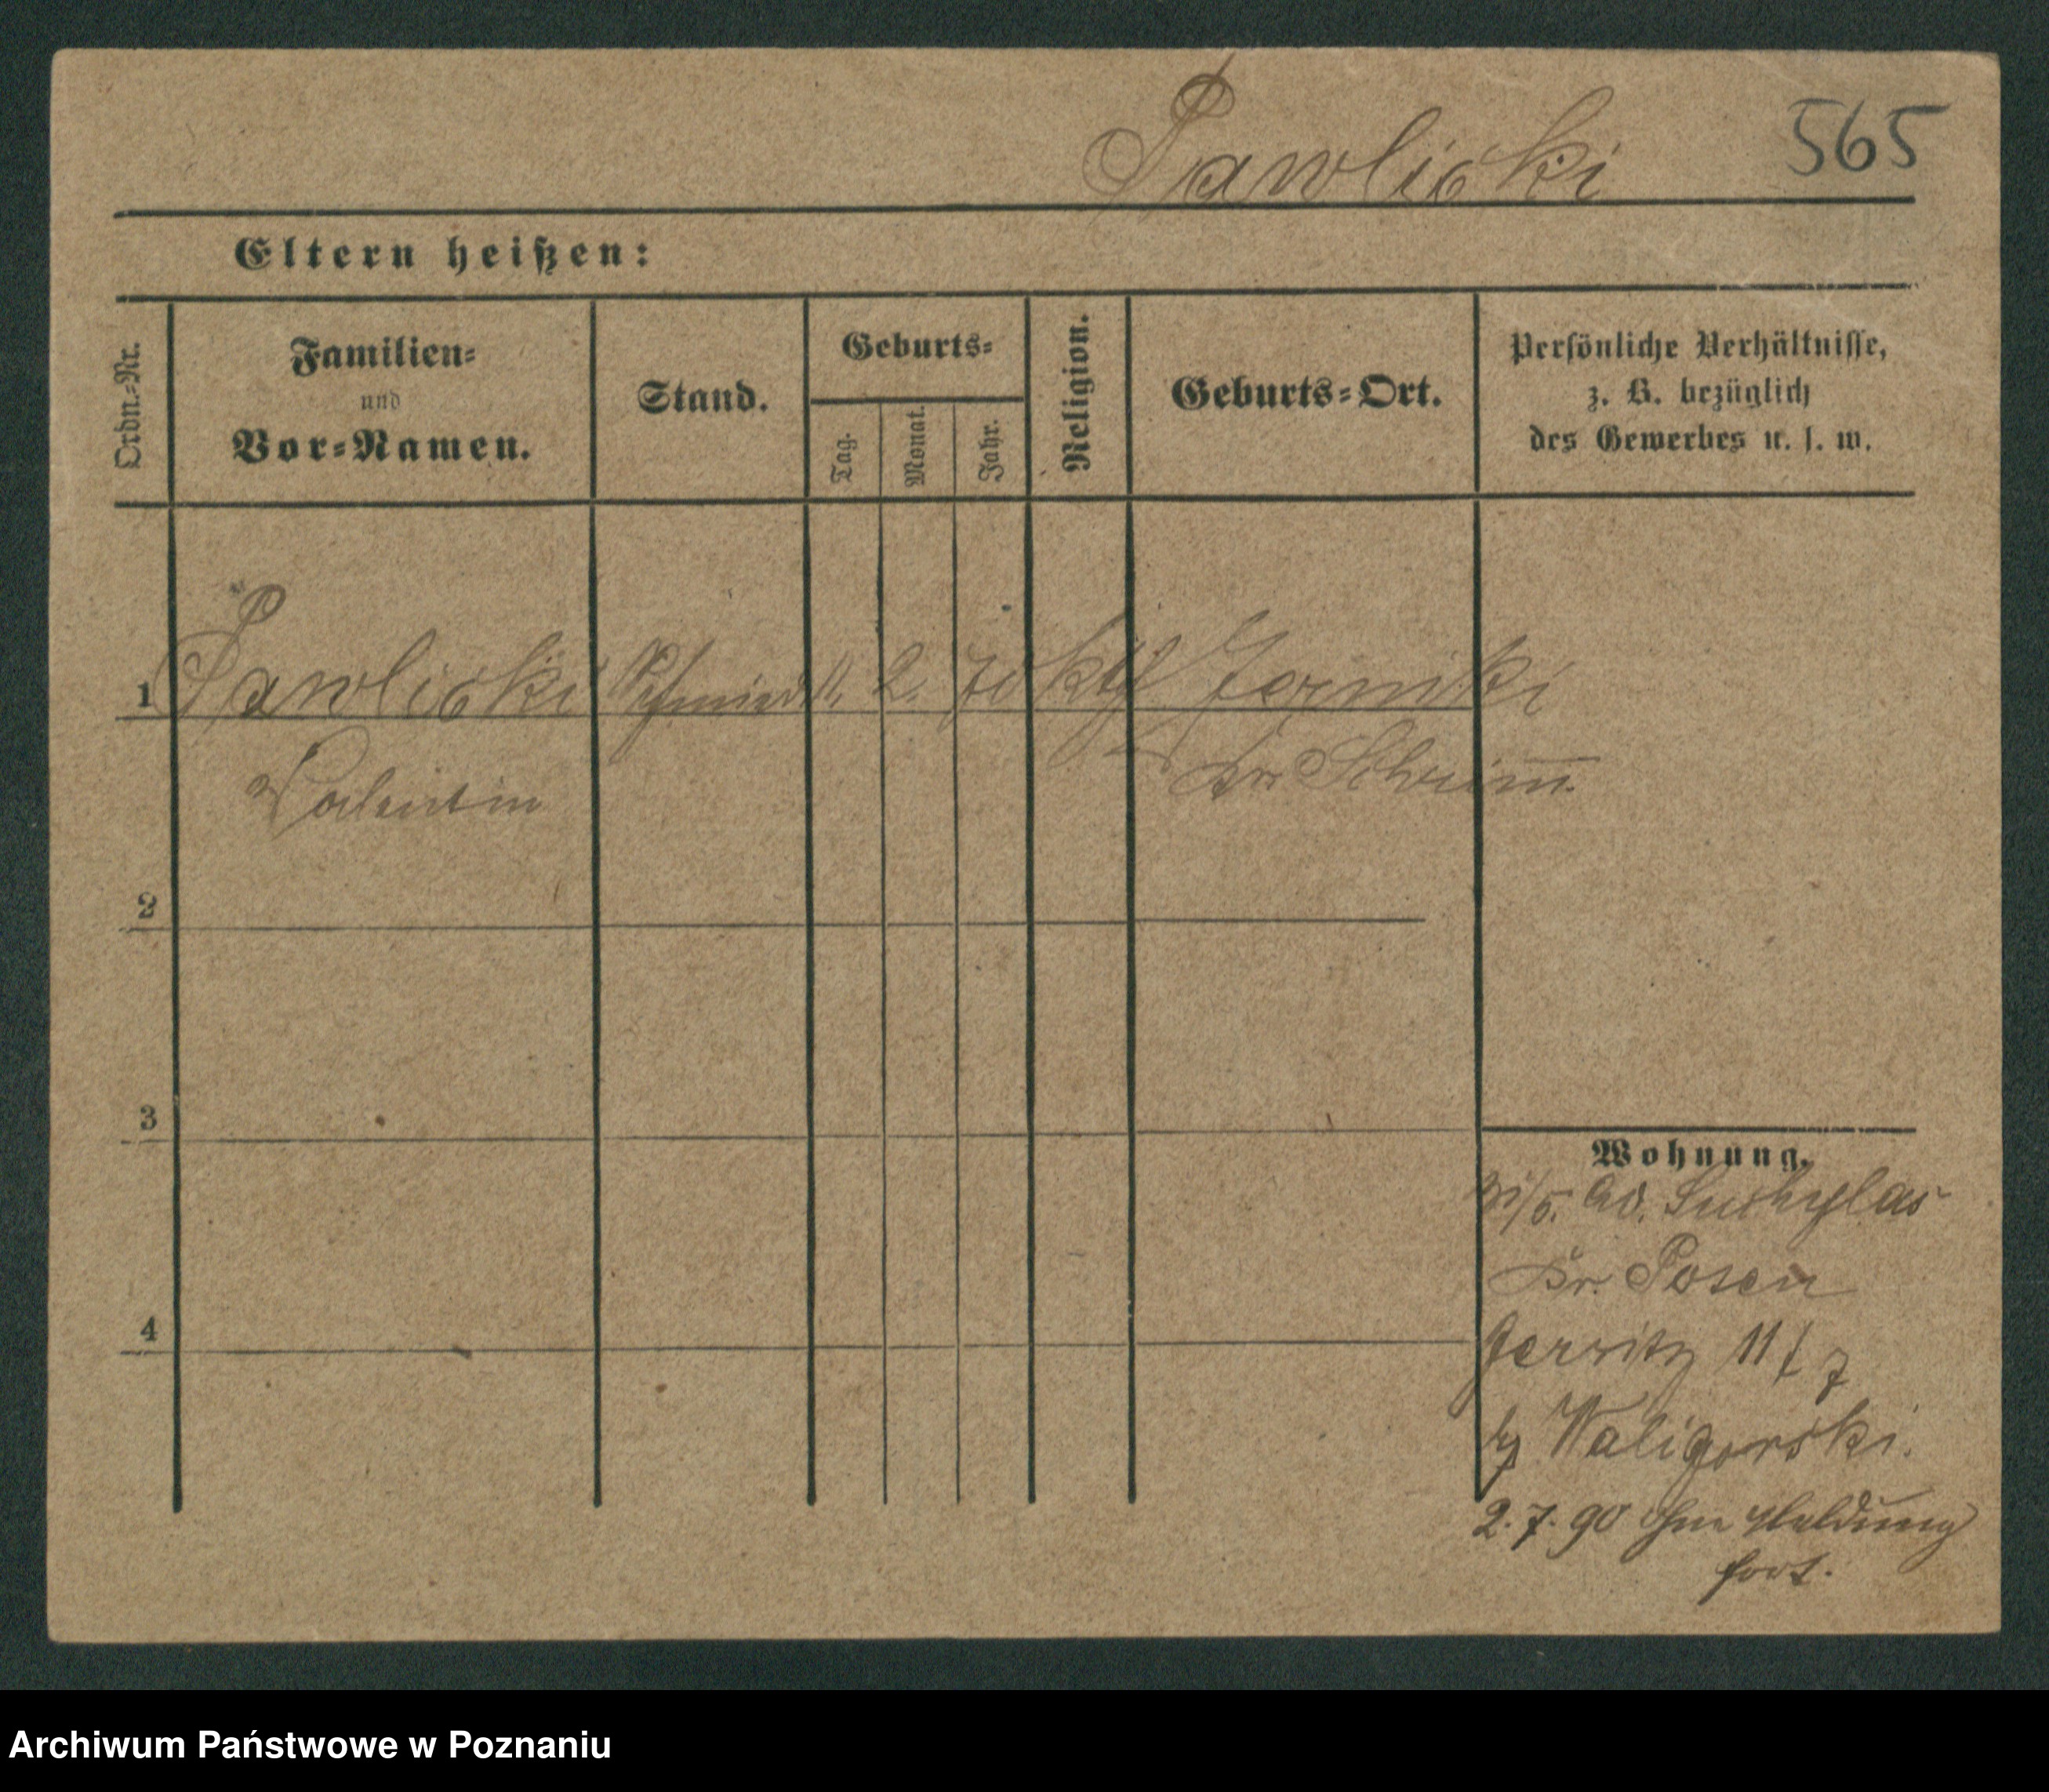 Pawlicki 565
Eltern heißen:
Ordn.-Nr.
Familien-
und
Vor-Namen.
Stand.
Geburts-
Tag.
Monat.
Jahr.
Religion.
Geburts-Ort.
Persönliche Verhältnisse,
z. B. bezüglich
des Gewerbes u. s. w.
1 Pawlicki Schmied 11. 2. 70 kth Jerniki
Valentin Kr Schrimm.
2
3
4
Wohnung.
31/5. Suchylas
Kr. Posen
Jersitz 11/7
b/ Waligorski.
2.7.90 ohne Meldung
fort.
Archiwum Państwowe w Poznaniu